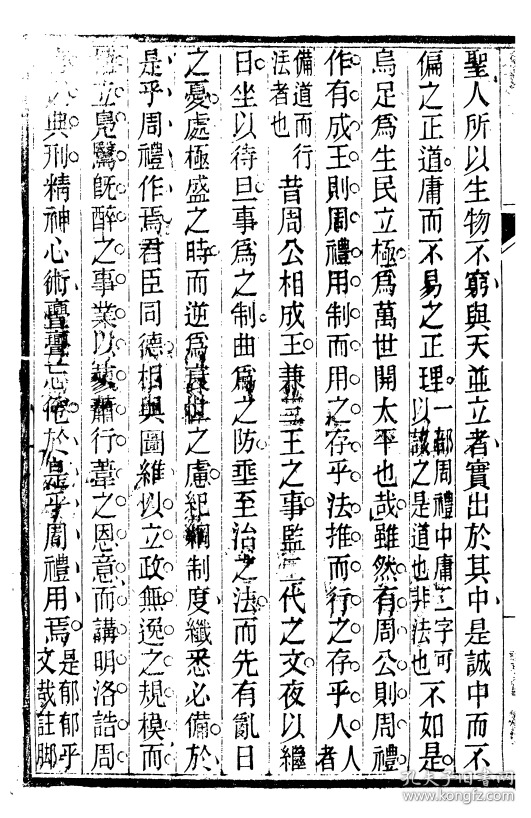 聖人所以生物不窮與天並立者實出於其中是誠中而不
偏之正道庸而不易之正理。一部周禮中庸二字可以該之是道也非法也不如是
烏足爲生民立極爲萬世開太平也哉雖然有周公則周禮
作有成王則周禮用制而用之存乎法推而行之存乎人人者
備道而行法者也昔周公相成王兼三王之事監二代之文夜以繼
日坐以待旦事爲之制曲爲之防垂至治之法而先有亂日
之憂處極盛之時而逆爲衰世之慮紀綱制度纖悉必備於
是乎周禮作焉君臣同德相與圖維以立政無逸之規模而
立鳧鷖旣醉之事業以蓼蕭行葦之恩意而講明洛誥周
典刑精神心術亹亹忘倦於是乎周禮用焉是郁郁乎文哉註脚
孔夫子旧书网
www.kongfz.com